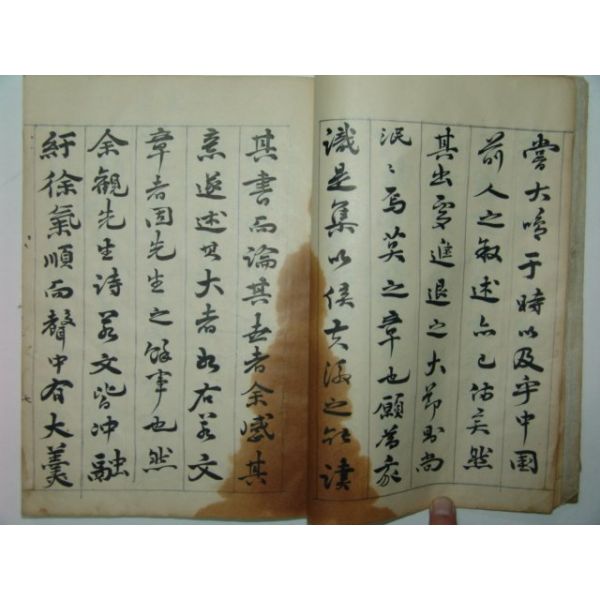 嘗大鳴于時以及乎中國
前人之叙述亦已備矣然
其出處進退之大節則尚
泯〻焉莫之章也願爲我
識是集以俟夫後之能讀
其書而論其世者余感其
意遂述其大者如右若文
章者固先生之餘事也然
余觀先生詩若文皆冲融
紆徐氣順而聲中有大羹